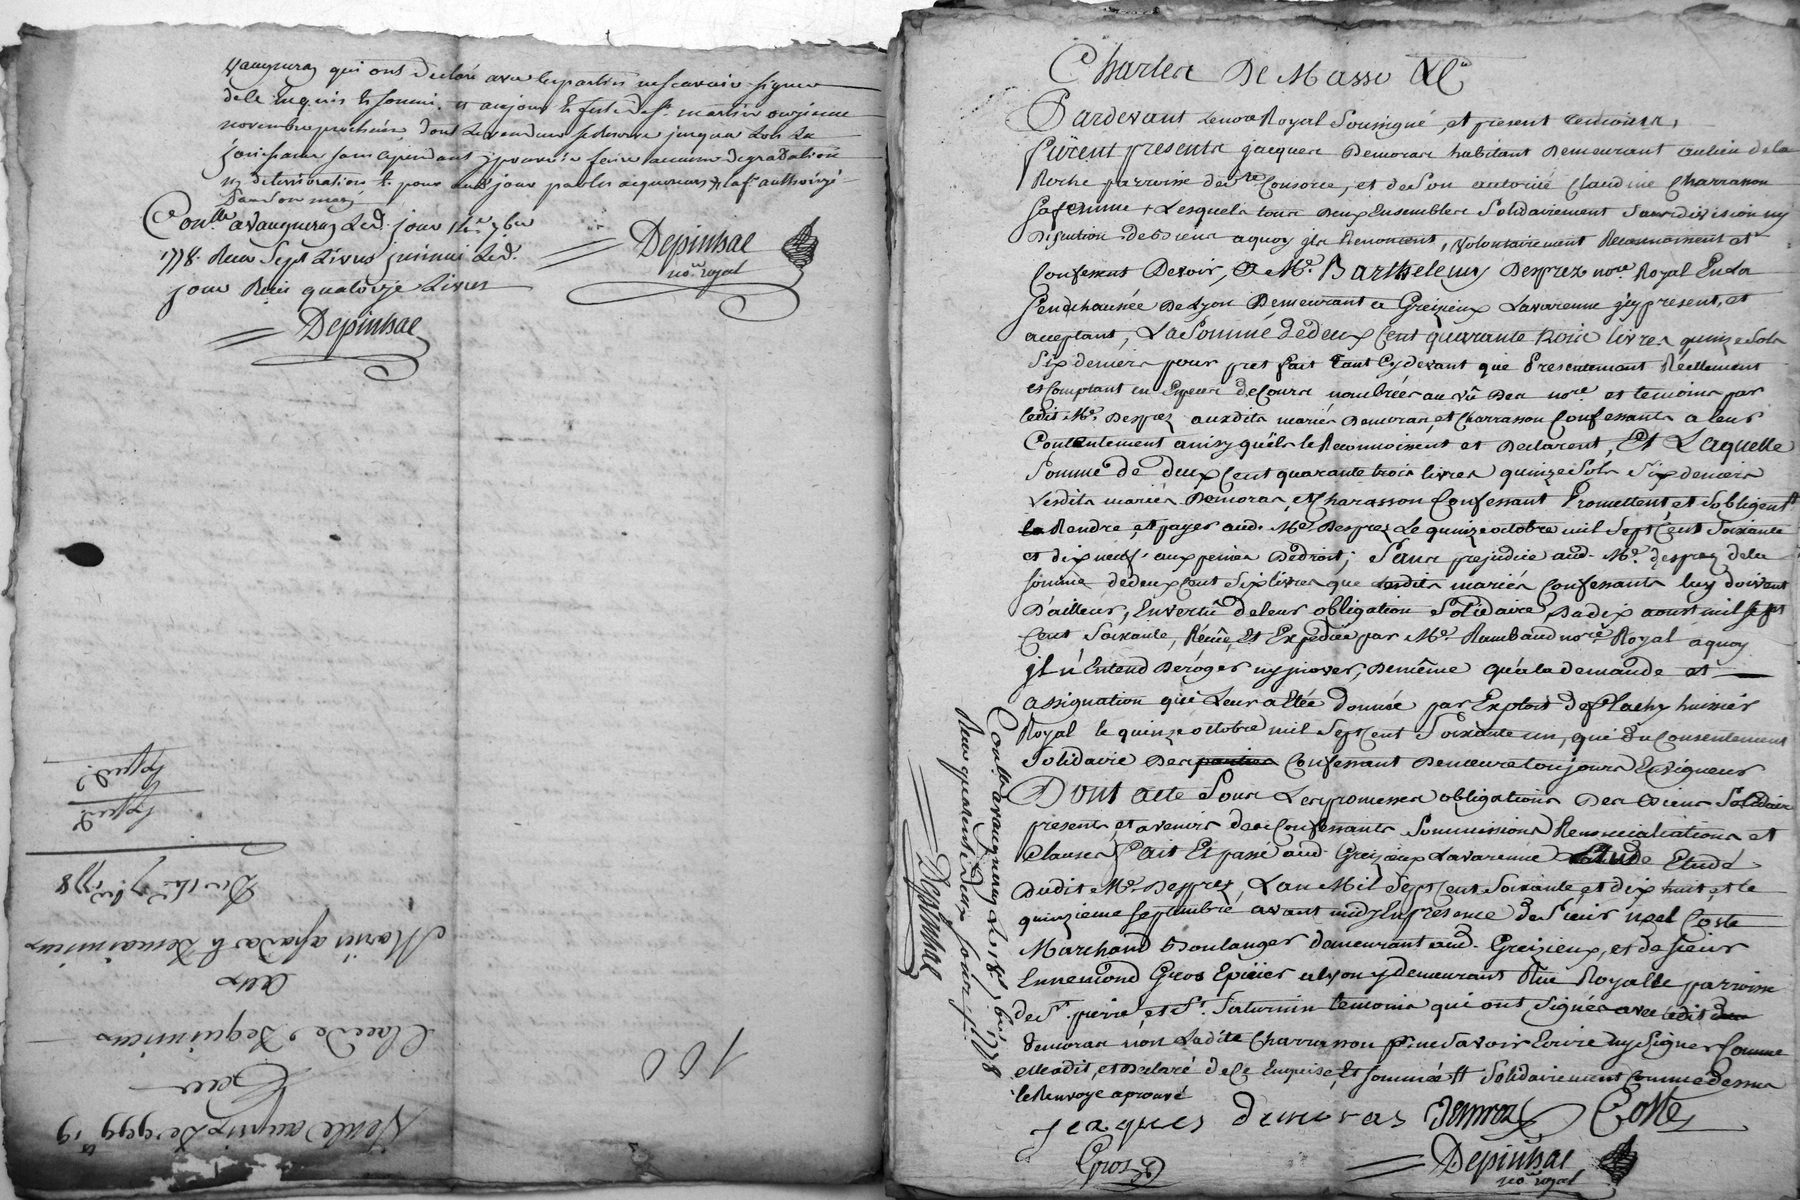 vaugneray qui ont declaré avec les parties ne scavoir signer
de ce enquis & sommé, et aujour & feste de St. martin onzieme
novembre prochain, dont le vendeur se reserve jusqua lors la
jouissance sans cependant y pouvoir faire aucune degradation
ny deterioration &. pour aud. jour par les acquereurs
Conllé a Vaugneray Led. jour 14e. 7bre
1778. Reçu Sept Livres
jour Reçu quatorze Livres
Depinhac
Depinhac
nore. royal
100
Vente au prix de 999 lt 19 s
par
Claude Dequinieux
aux
Mariés
Du 14e. 7bre 1778
Expéd.
Expéd.
Charles De Masso &c
Pardevant Le nore Royal Soussigné, et present temoins,
fürent presents jacques Demoras habitant Demeurant au lieu de la
Roche parroisse de Ste Consorce, et de Son autorité Claudine Charrasson
Sa femme, Lesquels tous Deux Ensembles Solidairement Sans division ny
Discution de biens aquoy ils Renoncent, volontairement Reconnoissent et
Confessent Devoir, a Me. Barthelemy Desprez nore. Royal En La
Senechaussée De Lyon Demeurant a Greizieux Lavarenne jcy present, et
acceptant, La Somme de deux Cent quarante trois livres quinze Sols
Six deniers pour pret fait tant Cy devant que Presentement Réellement
et Comptant en Especes de Cours nombrées au vû Des nore. et temoins par
ledit Me. Desprez auxdits mariés Demoras, et Charrasson Confessants a leur
Contentement ainsy quïls le Reconnoissent et Declarent, Et Laquelle
Somme de deux Cent quarante trois livres quinze Sols Six deniers
Lesdits mariés Demoras, et Charasson Confessant Promettent, et Sobligent
la Rendre, et payer aud. Me. Desprez Le quinze octobre mil Sept Cent Soixante
et dix neuf aux peines De droit; Sans prejudice aud. Me. desprez de la
Somme de deux Cent Six livres que Lesdits mariés Confessants luy doivent
D'ailleur, En vertû de leur obligation Solidaire Du dix aoust mil Sept
Cent Soixante, Réçuë, Et Expediée par Me. Rambaud nore. Royal aquoy
jl n'Entend Deroger ny jnover, De même qu'a la demande et
assignation qui Leur a Eté donnée par Exploit de flachy huissier
Royal le quinze octobre mil Sept Cent Soixante un, qui du Consentement
Solidaire Des parties Confessant Demeure toujours En vigueur
Dont acte Sous Les promesses obligations Des biens Solidair
presents et avenir des Confessants Soumissions Renonciations et
Clauses Fait Et passé aud. Greizieux Lavarenne Etude
Dudit Me. Desprez, L'an Mil Sept Cent Soixante et dix huit et le
quinzieme Septembre avant midy En presence de Sieur noel Coste
Marchand Boulanger demeurant aud. Greizieux, et de sieur
Ennemond Gros Epicier a Lyon y demeurant Rüe Royalle parroisse
de St. pierre et St. Saturnin temoins qui ont Signés avec ledit
Demoras non Ladite Charrasson pr. ne Savoir Ecrire ny Signer Comme
elle a dit, et declaré de Ce Enquise, Et Sommée ₶ Solidairement Comme dessus
le Renvoye aprouvé
jeaques demoras Desprez Coste
Gros
Depinhac
nore. royal
Conllé a vaugneray Le 18e. 7bre 1778
Reçu quarente Deux Sols
Depinhac